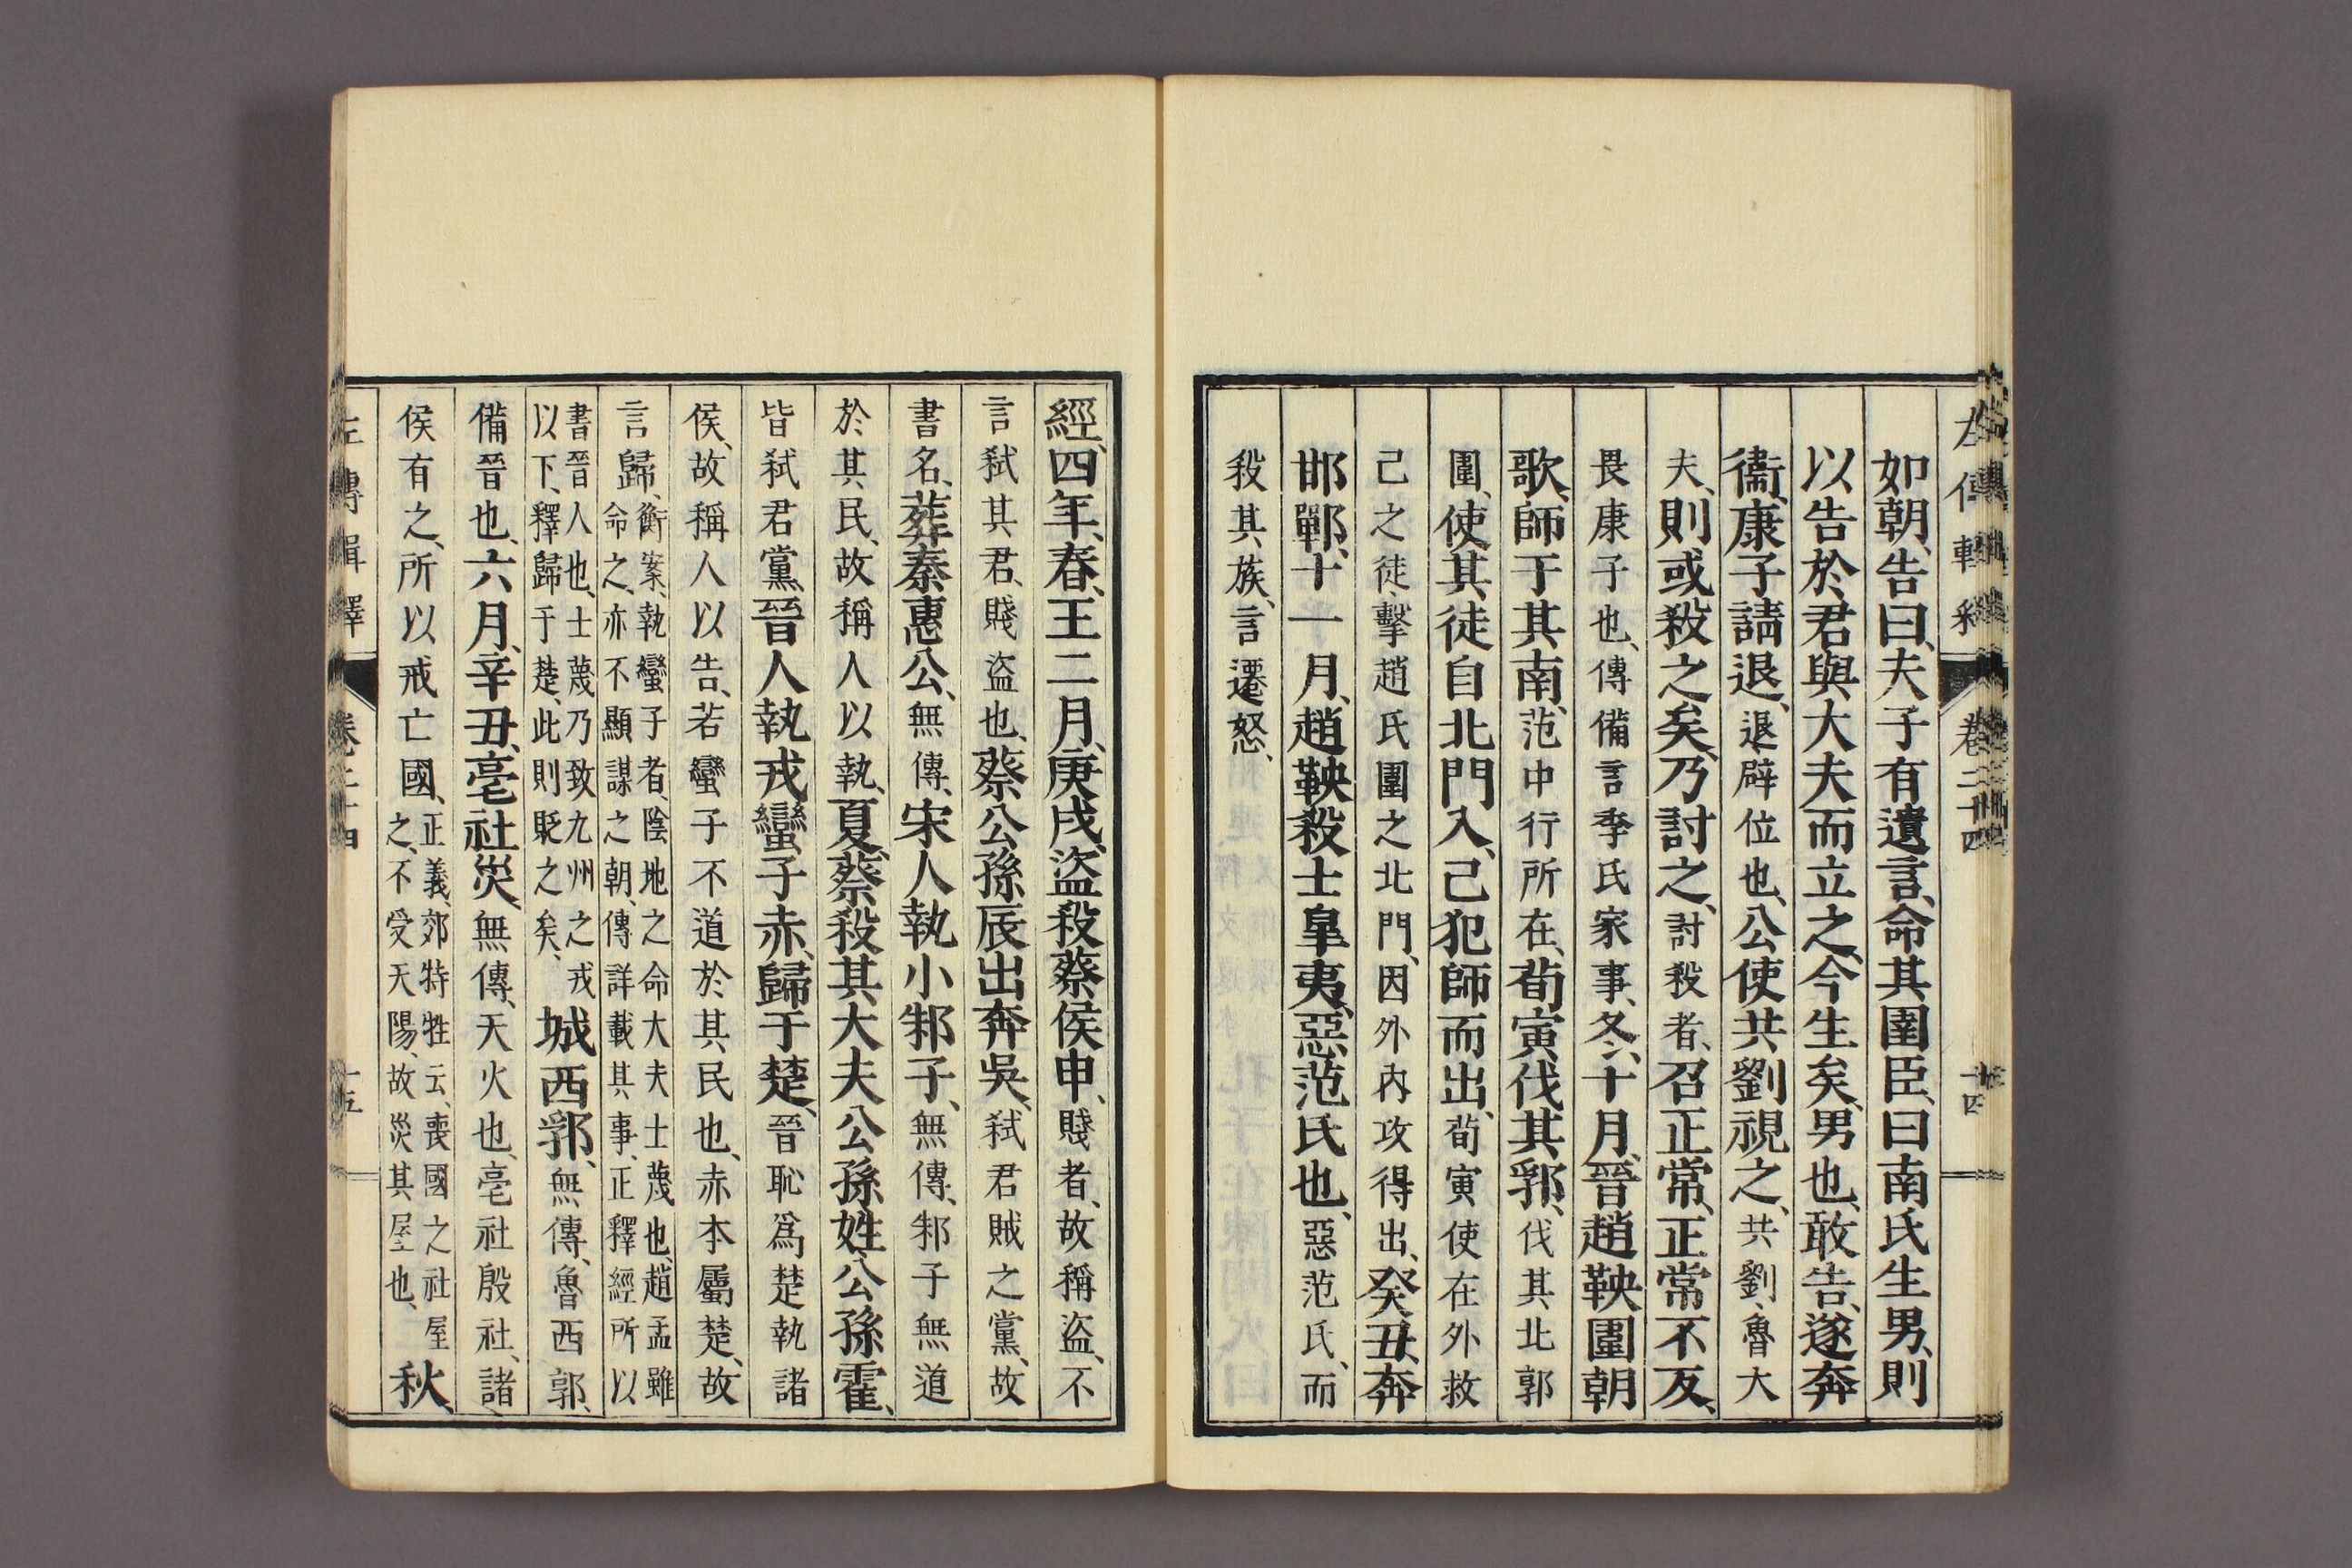 左傳輯釋 卷二十四 十四
如朝、告曰、夫子有遺言、命其圉臣、曰南氏生男、則
以告於君與大夫而立之、今生矣、男也、敢告、遂奔
衞、康子請退、退、辟位也、公使共劉視之、共劉、魯大
夫、則或殺之矣、乃討之、討殺者、召正常、正常不反、
畏康子也、傳備言季氏家事、冬、十月、晉趙鞅圍朝
歌、師于其南、范中行所在、荀寅伐其郛、伐其北郭
圍、使其徒自北門入、己犯師而出、荀寅使在外救
己之徒、擊趙氏圍之北門、因外內攻得出、癸丑、奔
邯鄲、十一月、趙鞅殺士臯夷、惡范氏也、惡范氏、而
殺其族、言遷怒、
經、四年、春、王二月、庚戌、盜殺蔡侯申、賤者、故稱盜、不
言弒其君、賤盜也、蔡公孫辰出奔吳、弒君賊之黨、故
書名、葬秦惠公、無傳、宋人執小邾子、無傳、邾子無道
於其民、故稱人以執、夏、蔡殺其大夫公孫姓、公孫霍、
皆弒君黨、晉人執戎蠻子赤、歸于楚、晉恥爲楚執諸
侯、故稱人以告、若蠻子不道於其民也、赤本屬楚、故
言歸、衡案、執蠻子者、陰地之命大夫士蔑也、趙孟雖
命之、亦不顯謀之朝、傳詳載其事、正釋經所以
書晉人也、士蔑乃致九州之戎
以下、釋歸于楚、此則貶之矣、城西郛、無傳、魯西郭、
備晉也、六月、辛丑、亳社災、無傳、天火也、亳社殷社、諸
侯有之、所以戒亡國、正義、郊特牲云、喪國之社屋
之、不受天陽、故災其屋也、秋、
左傳輯釋 卷二十四 十五